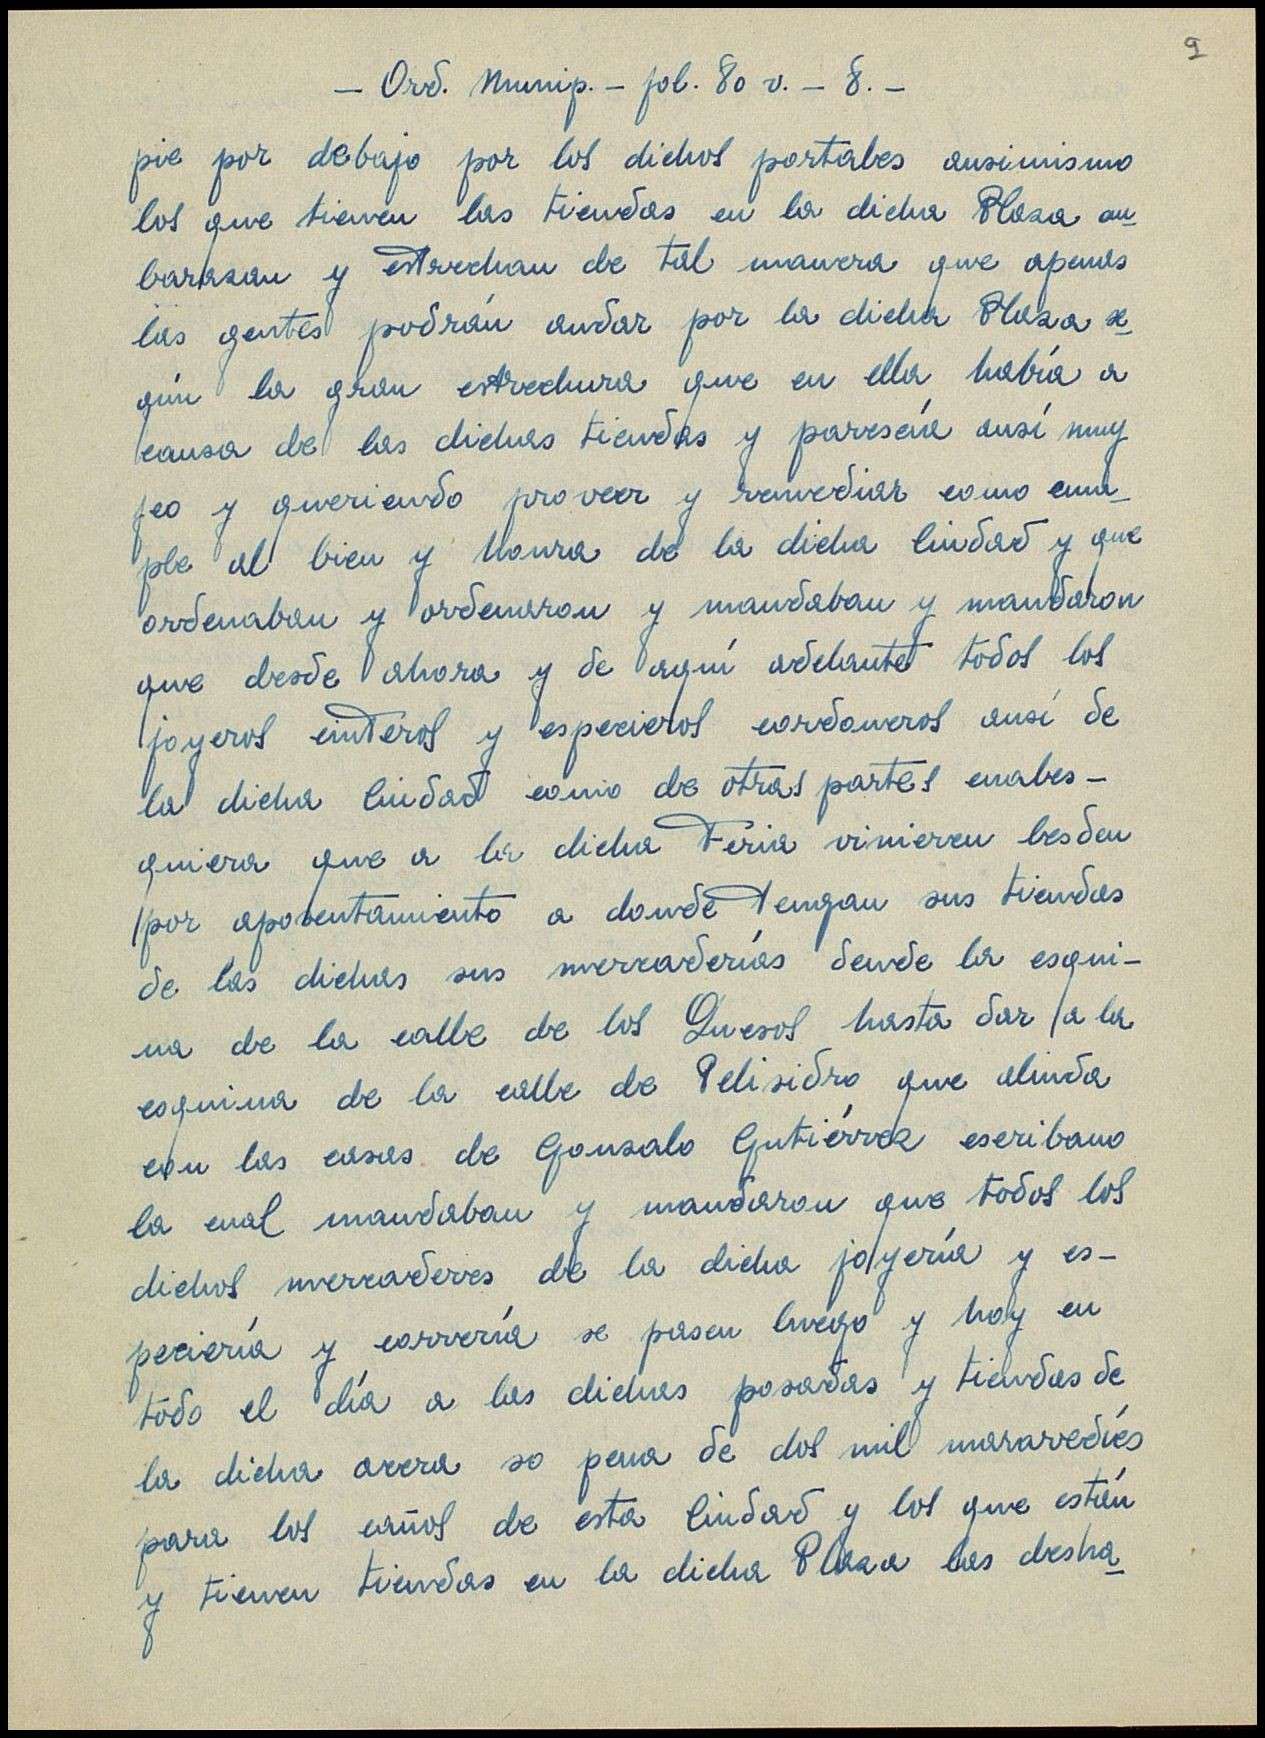 9
— Ord. Munip. — fol. 80 v. — 8. —
pie por debajo por los dichos portales ansimismo
los que tienen las tiendas en la dicha Plaza en
barazan y estrechan de tal manera que apenas
las gentes podrán andar por la dicha Plaza se
gún la gran estrechura que en ella había a
causa de las dichas tiendas y parescía ansí muy
feo y queriendo proveer y remediar como cum
ple al bien y honra de la dicha Ciudad y que
ordenaban y ordenaron y mandaban y mandaron
que desde ahora y de aquí adelante todos los
joyeros cinteros y especieros cordoneros ansí de
la dicha Ciudad como de otras partes cuales-
quiera que a la dicha Feria vinieren les den
por aposentamiento a donde tengan sus tiendas
de las dichas sus mercaderías dende la esqui-
na de la calle de los Quesos hasta dar a la
esquina de la calle de Pelisidro que alinda
con las casas de Gonzalo Gutiérrez escribano
la cual mandaban y mandaron que todos los
dichos mercaderes de la dicha joyería y es-
peciería y correría se pasen luego y hoy en
todo el día a las dichas posadas y tiendas de
la dicha acera so pena de dos mil maravedíes
para los caños de esta Ciudad y los que están
y tienen tiendas en la dicha Plaza las desha